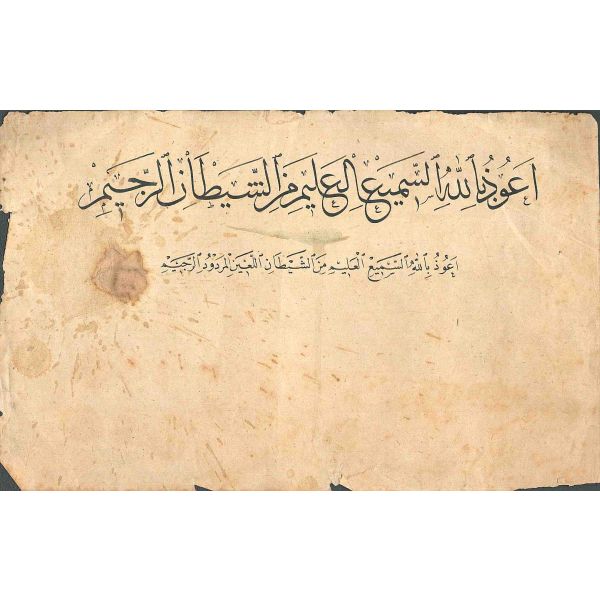 اَعُوذُ بِاللهِ السَّمِيعِ العَلِيمِ مِنَ الشَّيْطَانِ الرَّجِيمِ
اَعُوذُ بِاللهِ السَّمِيعِ العَلِيمِ مِنَ الشَّيْطَانِ اللَّعِينِ المَرْدُودِ الرَّجِيمِ